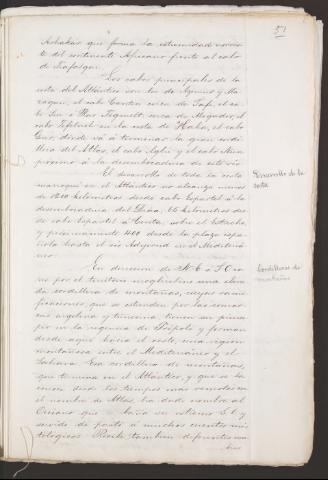 51
Achakar que forma la estremidad noroes-
te del continente Africano frente al cabo
de Trafalgar.
Los cabos principales de la
costa del Atlántico son los de Aguers y Ma-
zagan, el cabo Cantin cerca de Safi, el ca-
bo Sim ó Ras Tegmelt cerca de Mogador, el
cabo Tefelneh en la costa de Haha, el cabo
Guer, donde vá á terminar la gran cordi-
llera del Atlas, el cabo Aglu y el cabo Nun
proximo á la desembocadura de este rio.
El desarrollo de toda la costa
marroquí en el Atlántico no alcanza menos
de 1200 kilómetros desde cabo Espartel á la
desembocadura del Draa, 65 kilómetros des-
de cabo Espartel á Ceuta, sobre el Estrecho,
y próximamente 400 desde la plaza espa-
ñola hasta el rio Adyerud en el Mediterrá-
neo.
Desarrollo de la
costa
En direccion de N. E á S. O cor-
re por el territorio mogharbino una eleva-
da cordillera de montañas, cuyas rami-
ficaciones, que se estienden por las comar-
cas argelina y tunecina tienen su princi-
pio en la regencia de Trípoli y forman
desde aquí hácia el oeste, una region
montañosa entre el Mediterráneo y el
Sahara. Esa cordillera de montañas,
que termina en el Atlántico, y que se co-
nocen desde los tiempos más remotos con
el nombre de Atlas, ha dado nombre al
Océano que baña su estremo S. O y
servido de pasto á muchos cuentos mi-
tologicos. Recibe tambien diferentes nom-
bres
Cordilleras de
montañas